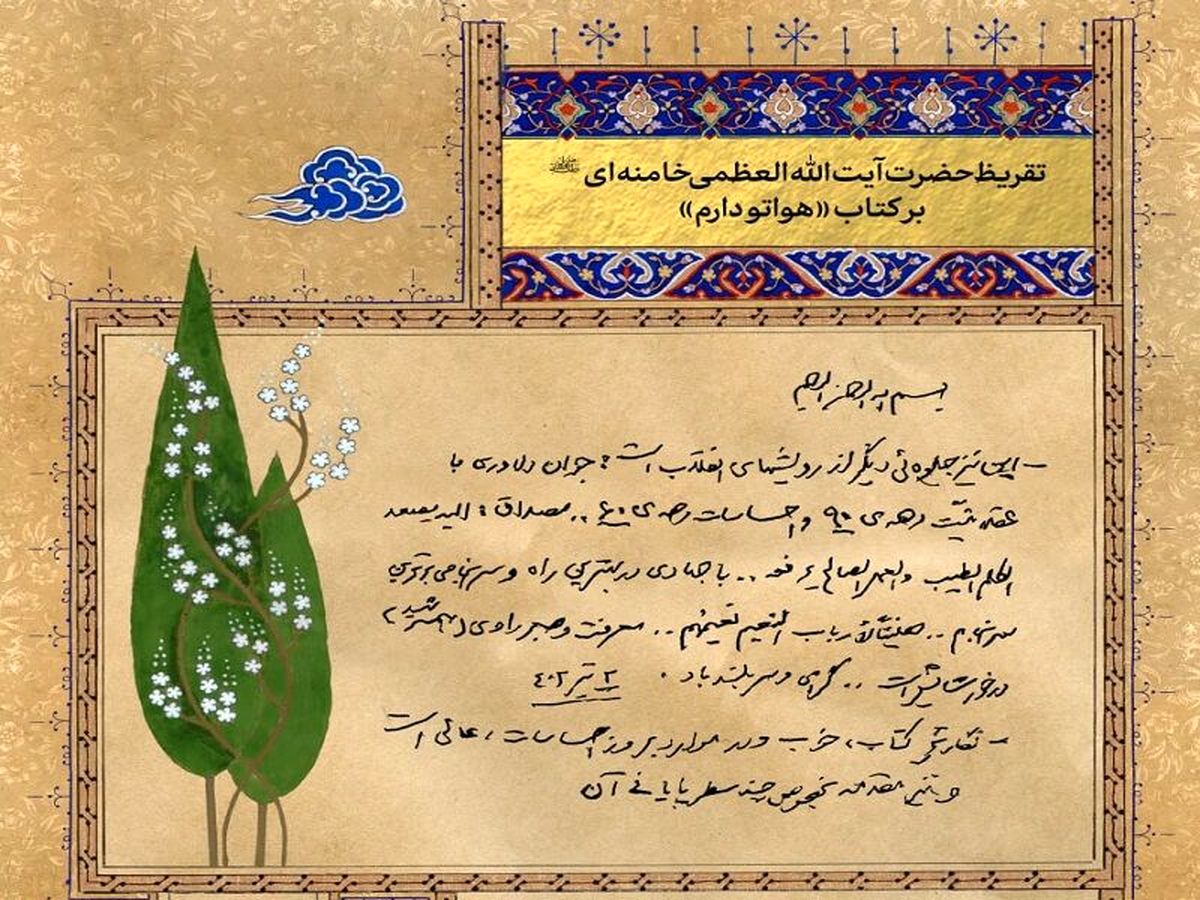 تقریظ حضرت آیت الله العظمی خامنه ای
بر کتاب «هواتو دارم»
بسم الله الرحمن الرحیم
- این نیز جلوه‌ئی دیگر از رویشهای انقلاب است: جوان دلاوری با
عقلانیّت دهه‌ی ۹۰ و احساسات دهه‌ی ۶۰ .. مصداق: الیه یصعد
الکلم الطیب والعمل الصالح یرفعه .. با جهادی در بهترین راه و سرانجامی برترین
سرانجام .. هنیئاً لأرباب النعیم نعیمهم .. معرفت و صبر راوی (همسر شهید)
درخور ستایش است .. گرامی و سربلند باد.
تیر ۴۰۲
- نگارش کتاب، خوب و در موارد بروز احساسات، عالی است
و نیز مقدمه بخصوص چند سطر پایانی آن